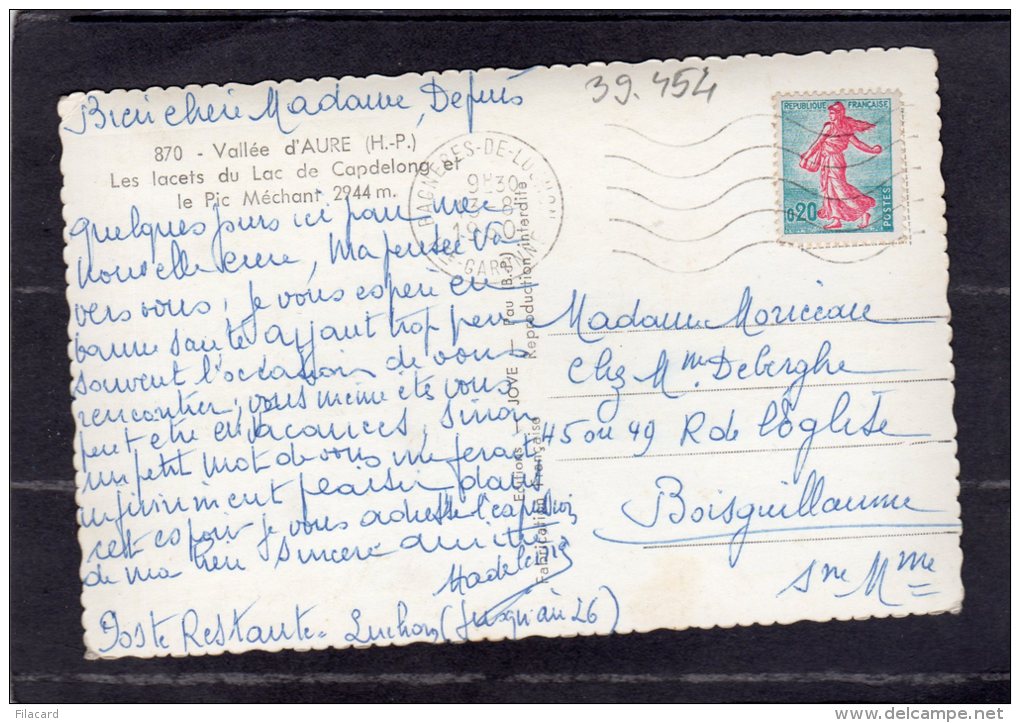 39.454
Bien chère Madame, Depuis
870 - Vallée d'AURE (H.-P.)
Les lacets du Lac de Capdelong et
le Pic Méchant 2944 m.
quelques jours ici pour une
nouvelle cure, ma pensée va
vers vous, je vous espère en
bonne santé ayant trop peu
souvent l'occasion de vous
rencontrer, vous même êtes vous
peut etre en vacances, sinon
un petit mot de vous me ferai
infiniment plaisir dans
cet espoir je vous adresse l'expression
de ma bien sincère amitié
Madeleine
Poste Restante - Luchon (jusqu'au 26)
BAGNERES-DE-LUCHON
9H30
1960
GARONNE
REPUBLIQUE FRANÇAISE
0,20
POSTES
Editions JOVE — Pau (B.-P.)
Reproduction Interdite
Fabrication Française
Madame Moriceau
chez Mme Deberghe
45 ou 49 R de l'Eglise
Boisguillaume
Sne Mme
Filacard
www.delcampe.net